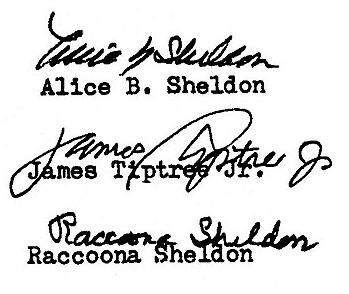 Alice B Sheldon
Alice B. Sheldon
James Tiptree Jr
James Tiptree Jr.
Raccoona Sheldon
Raccoona Sheldon